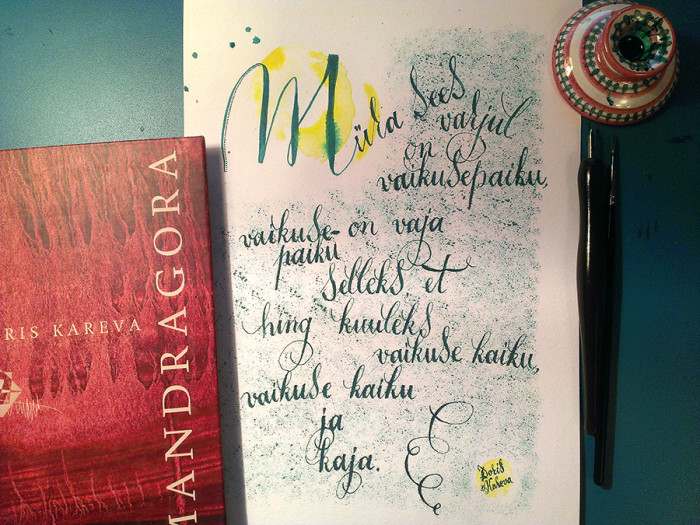 Müra sees
varjul
on
vaikusepaiku,
vaikuse- on vaja
paiku
selleks et
hing kuuleks
vaikuse kaiku,
vaikuse kaiku
ja
kaja.
Doris
Kareva
RIS KAREVA
MANDRAGORA